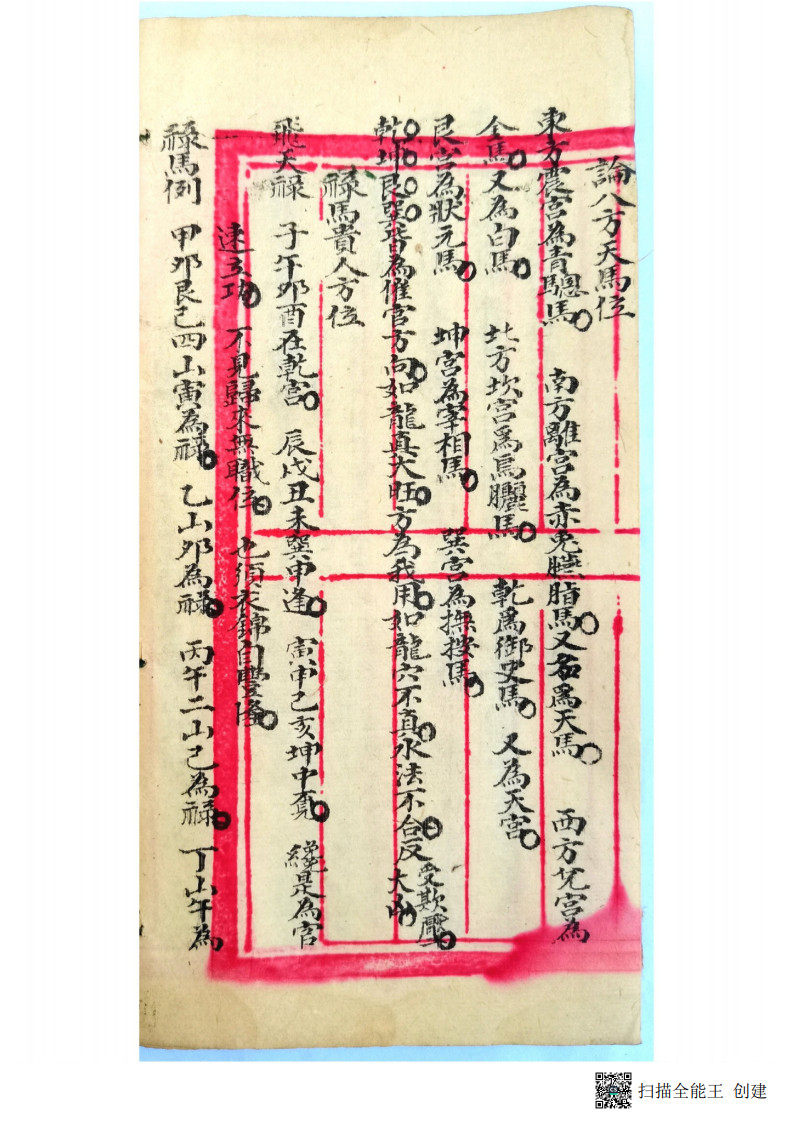 論八方天馬位
東方震宮為青驄馬○ 南方離宮為赤兎臙脂馬○又名為天馬○ 西方兌宮為
金馬○又為白馬○ 北方坎宮為烏騅馬○ 乾為御史馬○ 又為天宮○
艮宮為狀元馬○ 坤宮為宰相馬○ 巽宮為撫按馬○
乾○坤○艮○巽○皆為催官方向○如龍真大旺○方為我用○如龍穴不真○水法不合○反大凶○受欺壓○
祿馬貴人方位
飛天祿 子午卯酉在乾宮○ 辰戌丑未巽中逢○ 寅申巳亥坤中覓○ 總是為官
速立功○ 不見歸來無職位○ 也須衣錦自豐隆○
祿馬例 甲卯艮己四山寅為祿○ 乙山卯為祿○ 丙午二山巳為祿○ 丁山午為
扫描全能王 创建